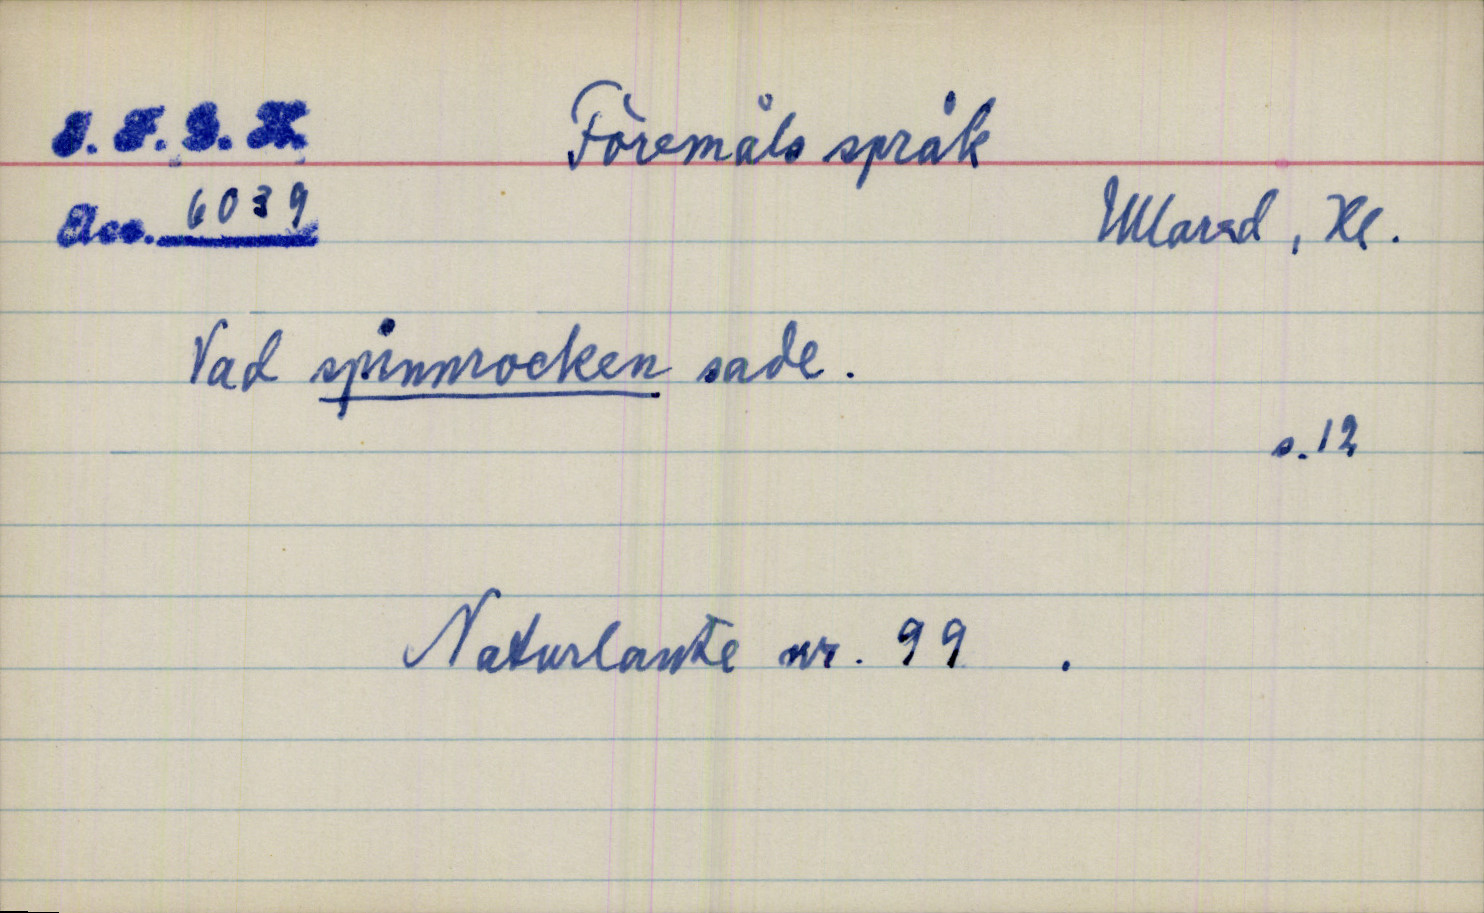 I. F. G. H.
Föremåls språk
Acc. 6039
Ullared, Hl.
Vad spinnrocken sade.
s. 12
Naturlante nr. 99 .